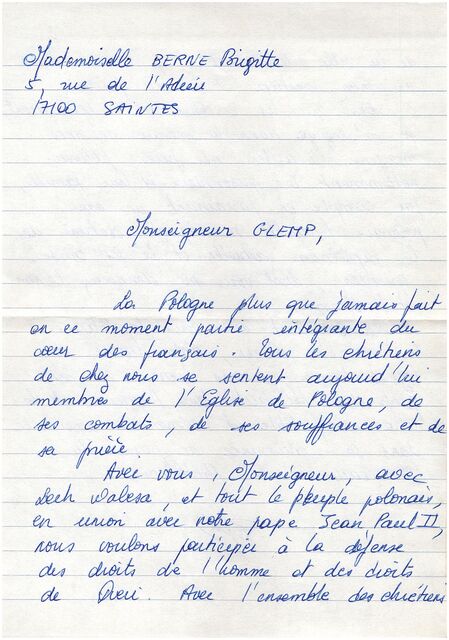 Mademoiselle BERNE Brigitte
5, rue de l'
17100 SAINTES
Monseigneur GLEMP,
La Pologne plus que jamais fait
en ce moment partie intégrante du
cœur des français. Tous les chrétiens
de chez nous se sentent aujourd'hui
membres de l'Eglise de Pologne, de
ses combats, de ses souffrances et de
sa prière.
Avec vous, Monseigneur, avec
Lech Walesa, et tout le peuple polonais,
en union avec notre pape Jean Paul II,
nous voulons participer à la défense
des droits de l'homme et des droits
de Dieu. Avec l'ensemble des chrétiens